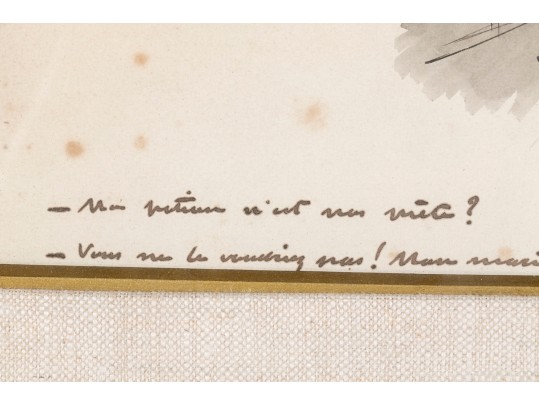 — Ma voiture n'est pas prête?
— Vous ne le voudriez pas! Mon mari